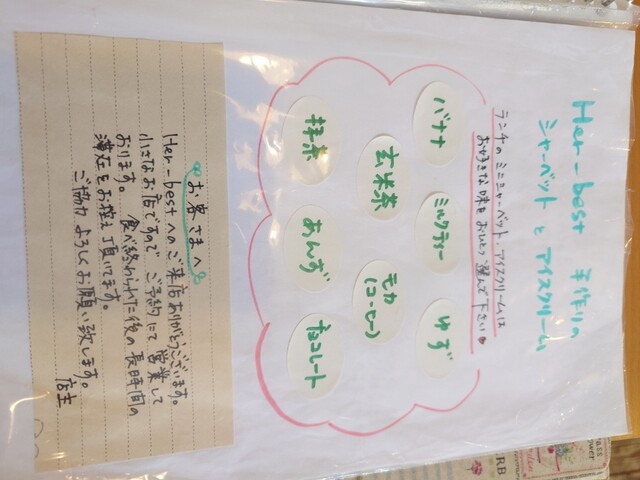 Her-best 手作りの
シャーベット と アイスクリーム
ランチの ミニシャーベット、アイスクリームは
お好きな味を おひとつ 選んで下さい♥
バナナ
ミルクティー
ゆず
玄米茶
モカ
(コーヒー)
抹茶
あんず
チョコレート
お客さまへ
Her-bestへのご来店ありがとうございます。
小さなお店ですので ご予約にて 営業して
おります。 食べ終わられた後の長時間の
滞在をお控え頂いてます。
ご協力よろしくお願い致します。
店主